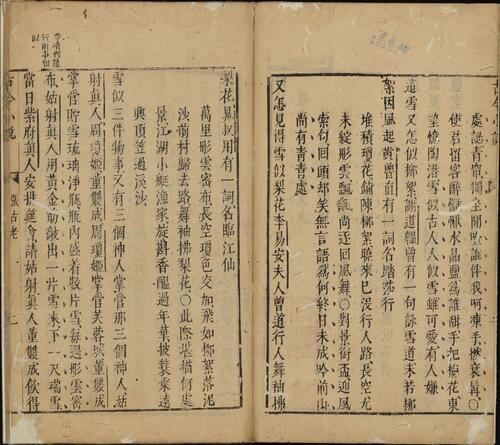 處認青驄獨坐閒吟誰伴我呵凍手撚衰髯○
使君留客醉厭厭水晶鹽爲誰甜手把梅花東
望憶陶潛雪似古人人似雪雖可愛有人嫌
這雪又怎似柳絮謝道韞曾有一句詠雪道未若柳
絮因風起黃魯直有一詞名踏莎行
堆積瓊花鋪陳柳絮曉來已沒行人路長空尤
未綻彤雲飄颻尚逐迴風舞○對景銜盃迎風
索句回頭却笑無言語爲何終日未成吟前山
尚有青青處
又怎見得雪似梨花李易安夫人曾道行人舞袖拂
梨花晁叔用有一詞名臨江仙
萬里彤雲密布長空瓊色交加飛如柳絮落泥
沙前村歸去路舞袖拂梨花○此際堪描何處
景江湖小艇漁家旋斟香醞過年華披簑乘遠
興頂笠過溪沙
雪似三件物事又有三個神人掌管那三個神人姑
射真人周瓊姬董雙成周瓊姬掌管芙蓉城董雙成
掌管貯雪琉璃淨瓶瓶內盛着數片雪每遇彤雲密
布姑射真人用黃金筯敲出一片雪來下一尺瑞雪
當日紫府真人安排筵會請姑射真人董雙成飲得
古今小說 張古老 二
李靖代龍
行雨事相
似